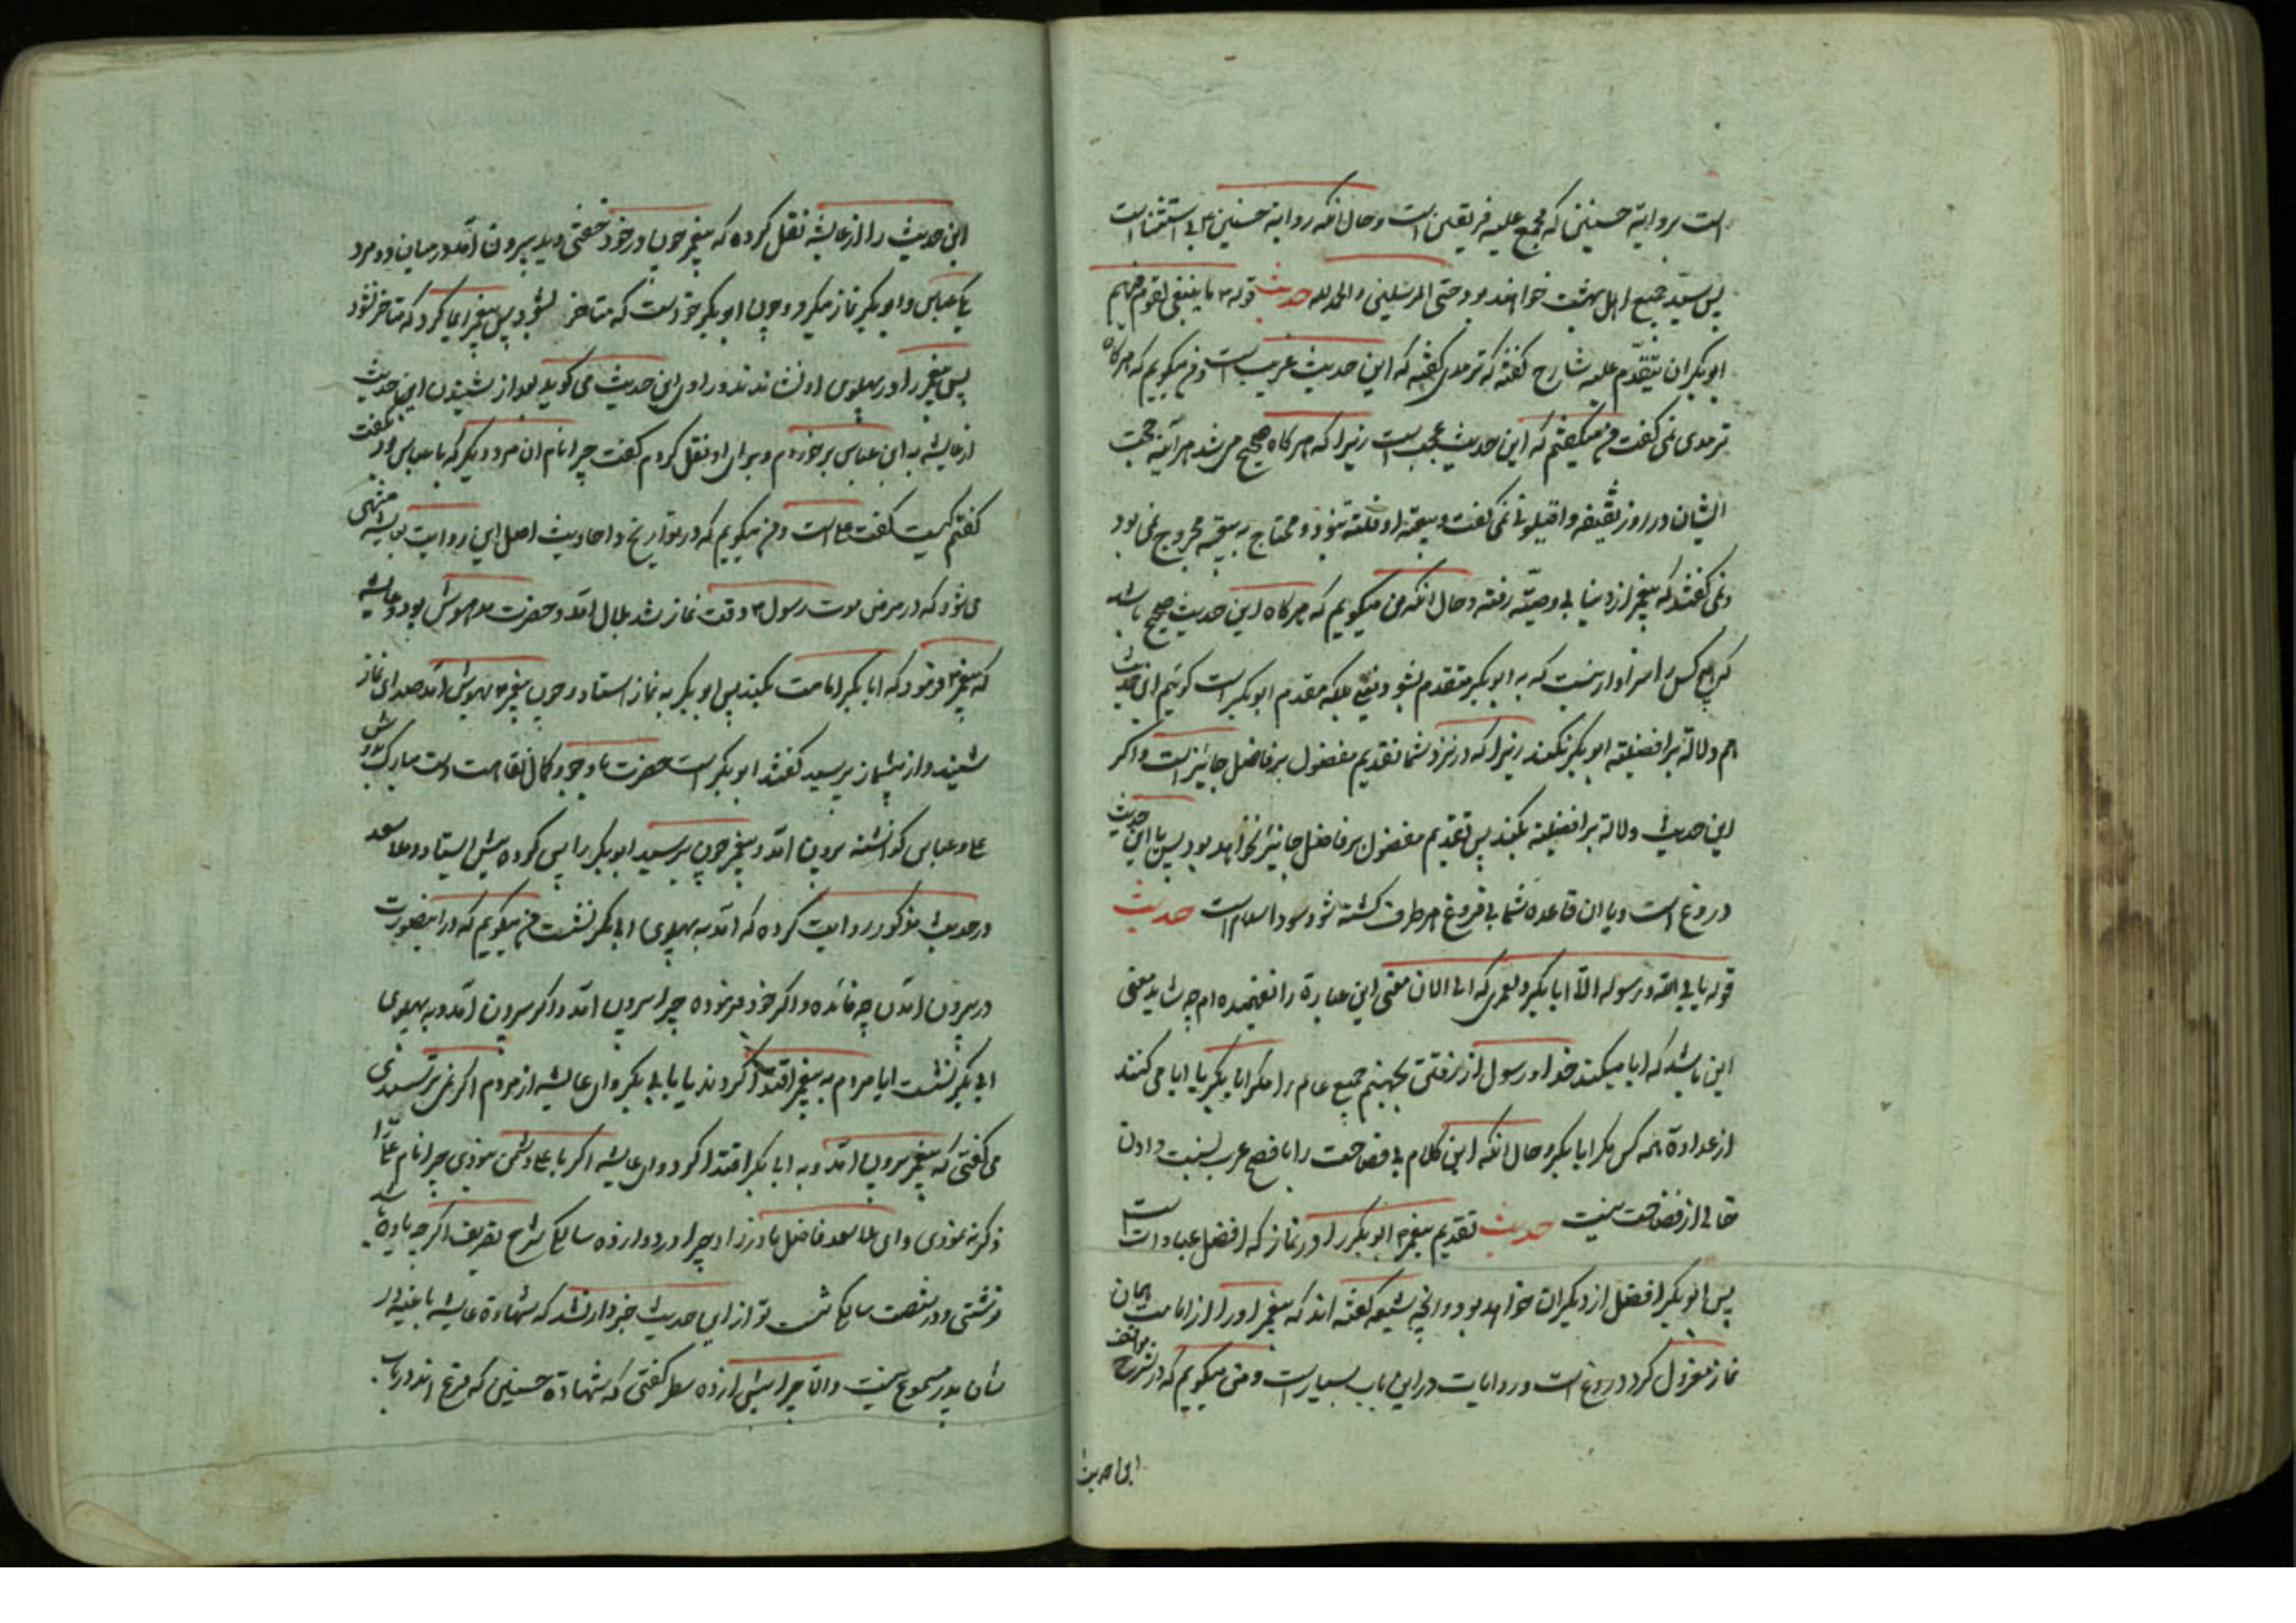 است بروایة حسنین که مجمع علیه فریقین است و حال آنکه روایة حسنین بی استثنا است
پس سیّد جمیع اهل بهشت خواهند بود حتی المرسلین والحمد لله حدیث قوله م ما ینبغی لقوم فیهم
ابوبکر ان یتقدّم علیه شارح گفته که ترمدی گفته که این حدیث غریب است و من میکویم که هرکاه
ترمدی نمی گفت من میکفتم که این حدیث عجیب است زیرا که هرکاه صحیح می شد هرآینه حجت
ایشان در روز سقیفه و اقیلونی نمی گفت و بیعة او فلتة نبود و محتاج به بیعة مجروح نمی بود
و نمی گفتند که پیغمبر از دنیا بی وصیّة رفته و حال آنکه من میکویم که هرکاه این حدیث صحیح باشد
که هیچ کس را سزاوار نیست که به ابوبکر متقدم شود یعنی بلکه مقدم ابوبکر است کوئیم این حدیث
هم دلالة بر افضلیة ابوبکر نکند زیرا که در نزد شما تقدیم مفضول بر فاضل جائز است و اگر
این حدیث دلالة بر افضلیة بکند پس تقدیم مفضول بر فاضل جائز نخواهد بود پس یا این حدیث
دروغ است و یا ان قاعده شما بی فروغ هر طرف کشته شود سود اسلام است حدیث
قوله یابی الله و رسوله الّا ابابکر و لعمری که الی الان معنی این عبارة را نفهمیده ام چه شاید معنی
این باشد که ابا میکنند خدا و رسول از نرفتن بجهنم جمیع عالم را مکر ابابکر یا ابا می کنند
از عداوة همه کس مکر ابابکر و حال آنکه این کلام بی فصاحت را بافصح عرب نسبت دادن
خالی از فضاحت نیست حدیث تقدیم پیغمبر م ابوبکر را در نماز که افضل عبادات است
پس ابوبکر افضل از دیکران خواهد بود و آنچه شیعه گفته اند که پیغمبر او را از امامت همان
نماز معزول کرد دروغ است و روایات در این باب بسیار است و من میکویم که در شرح مواقف
این حدیث
این حدیث را از عایشه نقل کرده که پیغمبر چون در خود خفتی دید بیرون آمد در میان دو مرد
یکی عباس و ابوبکر نماز میکرد و چون ابوبکر خواست که متاخر شود پس پیغمبر ایما کرد که متاخر نشود
پس پیغمبر را در پهلوی او نشاندند و راوی این حدیث می کوید بعد از شنیدن این حدیث
از عایشه به ابن عباس برخوردم و برای او نقل کردم گفت چرا نام ان مرد دیکر که با عباس بود نگفت
گفتم کیست گفت علی است و من میکویم که در تواریخ و احادیث اصل این روایت بعایشه منتهی
می شود که در مرض موت رسول م وقت نماز شد بلال آمد و حضرت مدهوش بود و عایشه
که پیغمبر م فرمود که ابابکر امامت بکند پس ابوبکر به نماز استاد و چون پیغمبر م بهوش آمد صدای نماز
شنید و از پیشنماز پرسید گفتند ابوبکر است حضرت با وجود کمال نقاهت دست مبارک بدوش
علی و عباس کذاشته بیرون آمد و پیغمبر چون برسید ابوبکر را پس کرده پیش ایستاد و ملا سعد
در حدیث مذکور روایت کرده که آمد به پهلوی ابی بکر نشست من میکویم که در اینصورت
در بیرون آمدن چه فائده و اگر خود فرموده چرا بیرون آمد و اگر بیرون آمد و به پهلوی
ابی بکر نشست ایا مردم به پیغمبر اقتدا کردند یا بابی بکر وای عایشه از مردم اگر نمی ترسیدی
می گفتی که پیغمبر بیرون آمد و به ابابکر اقتدا کرد وای عایشه اگر با علی دشمن نبودی چرا نام علی را
ذکر نه نمودی و ای ملا سعد فاضل
نوشتی تو از این حدیث خبردار نشد که شهادة عایشه
شان پدر مسموع نیست و الّا چرا پیش ازده سطر گفتی که شهادة حسنین که فرع اند در باب